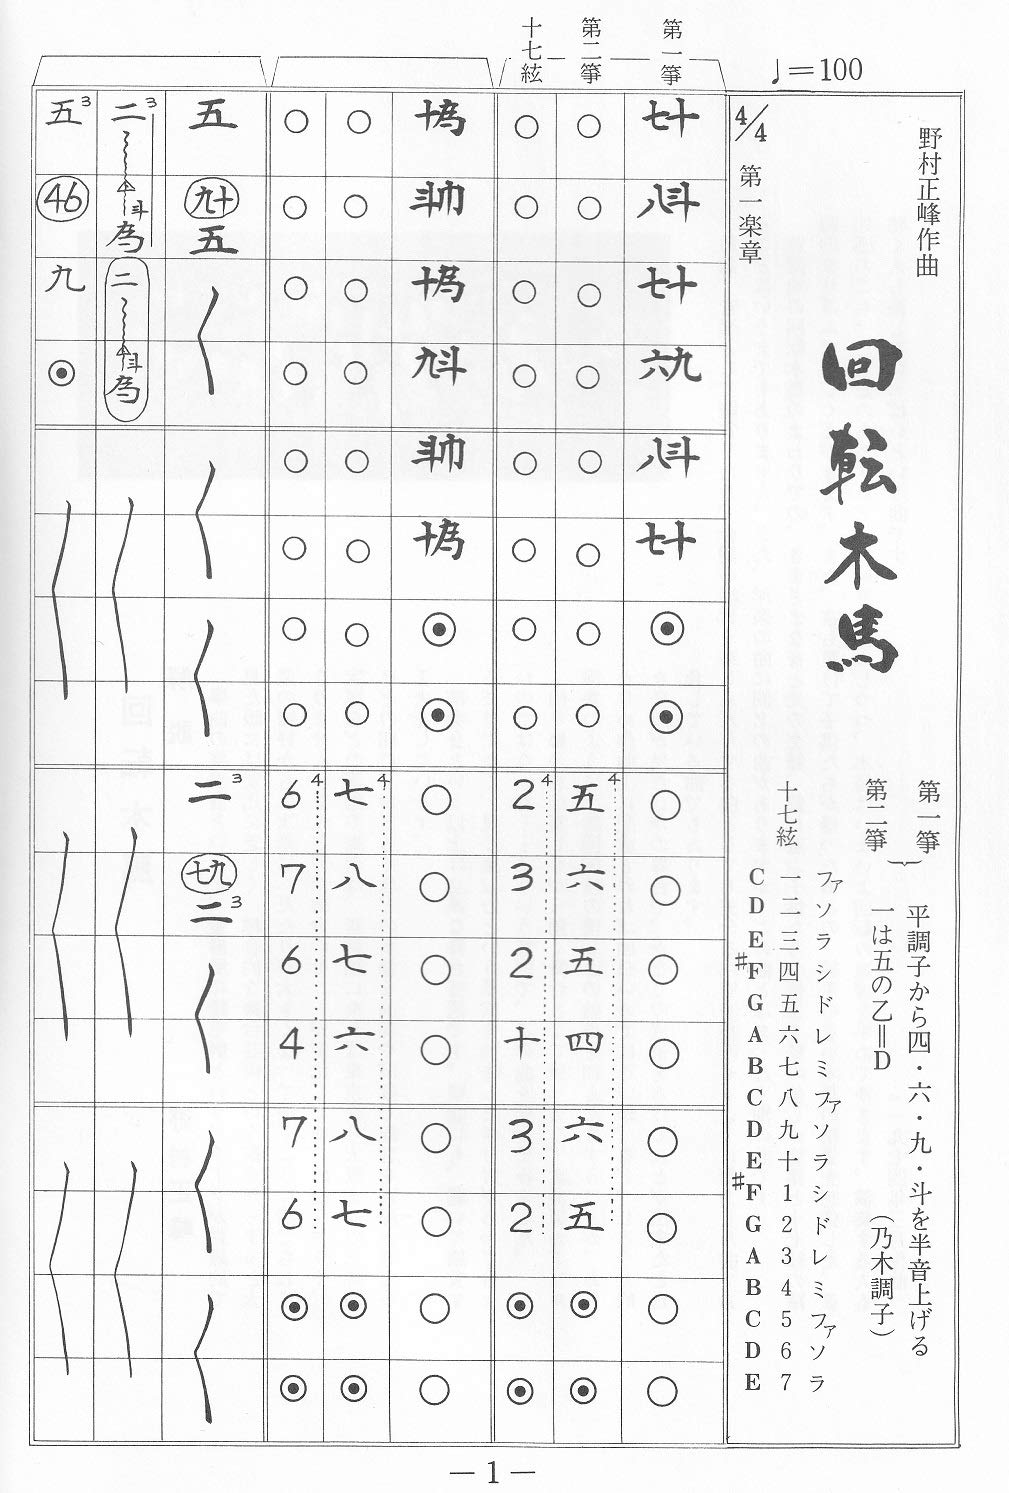 ♩=100
野村正峰作曲
回転木馬
第一箏
第二箏
平調子から四・六・九・斗を半音上げる
一は五の乙=D
(乃木調子)
十七絃
ファ ソ ラ シ ド レ ミ ファ ソ ラ シ ド レ ミ ファ ソ ラ
一 二 三 四 五 六 七 八 九 十 1 2 3 4 5 6 7
C D E ♯F G A B C D E ♯F G A B C D E
4/4 第一楽章
第一箏
七十 八斗 七十 六九
八斗 七十 ⦿ ⦿
○ ○ ○ ○
○ ○ ○ ○
第二箏
○ ○ ○ ○
○ ○ ○ ○
五 4 六 五 四 4
六 五 ⦿ ⦿
十七絃
○ ○ ○ ○
○ ○ ○ ○
2 4 3 2 十
3 2 ⦿ ⦿
十為 斗巾 十為 九斗
斗巾 十為 ⦿ ⦿
○ ○ ○ ○
○ ○ ○ ○
○ ○ ○ ○
○ ○ ○ ○
七 4 八 七 六
八 七 ⦿ ⦿
○ ○ ○ ○
○ ○ ○ ○
6 4 7 6 4
7 6 ⦿ ⦿
五 九十 五
二 3 七九 二 3
二 3 斗 為 二 斗 為
五 3 46 九 ⦿
— 1 —